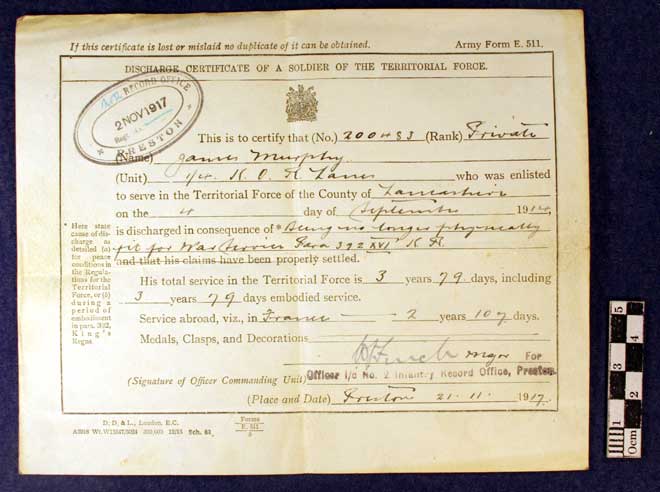 If this certificate is lost or mislaid no duplicate of it can be obtained. Army Form E. 511.
DISCHARGE CERTIFICATE OF A SOLDIER OF THE TERRITORIAL FORCE.
RECORD OFFICE
2 NOV 1917
PRESTON
This is to certify that (No.) 200483 (Rank) Private
(Name) James Murphy
(Unit) 1/4 K. O. R. Lancs who was enlisted
to serve in the Territorial Force of the County of Lancashire
on the 4 day of September 1914,
is discharged in consequence of * Being no longer physically
fit for War Service Para 392 XVI K R
and that his claims have been properly settled.
* Here state
cause of dis-
charge as
detailed (a)
for peace
conditions in
the Regula-
tions for the
Territorial
Force, or (b)
during a
period of
embodiment
in para. 392,
King's
Regns
His total service in the Territorial Force is 3 years 79 days, including
3 years 79 days embodied service.
Service abroad, viz., in France — 2 years 107 days.
Medals, Clasps, and Decorations
Major For
Officer i/c No. 2 Infantry Record Office, Preston.
(Signature of Officer Commanding Unit)
(Place and Date) Preston 21.11.1917.
D. D. & L., London, E.C.
Sch. 63
Forms
E. 511
0cm 1 2 3